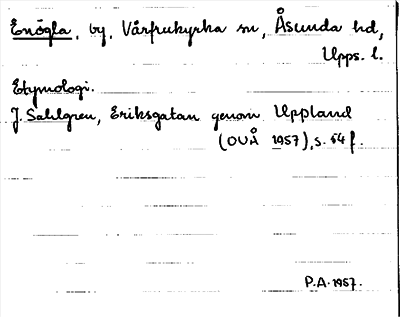 Enögla, by, Vårfrukyrka sn, Åsunda hd,
Upps. l.
Etymologi.
J. Sahlgren, Eriksgatan genom Uppland
(OUÅ 1957), s. 54 f.
P.A. 1957.